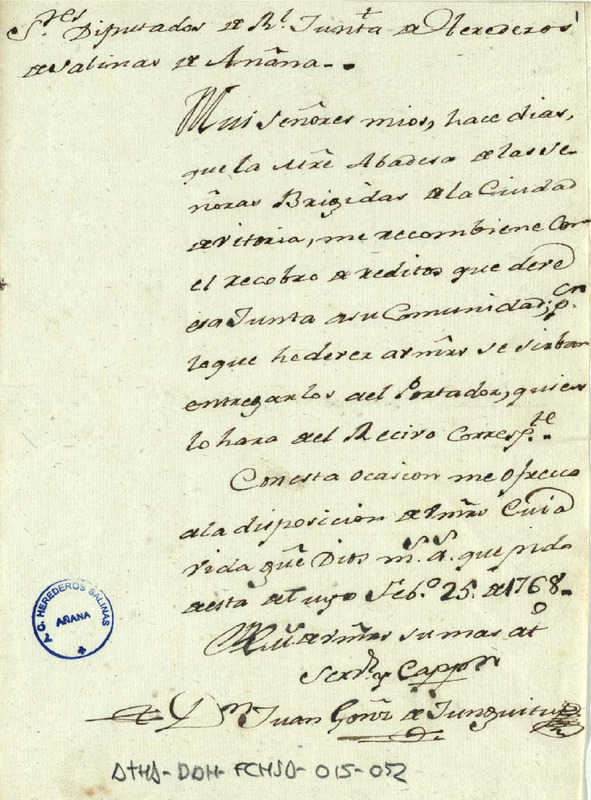 1
S.res Diputados de Rl. Junta de Herederos
de Salinas de Añana..
Mui Señores mios, hace dias,
que la Mre. Abadesa de las Se-
ñoras Brigidas de la Ciudad
de Vitoria, me recombiene Con
el recobro de reditos que debe
esa Junta a su Comunidad; pr.
lo que he de
se sirban
entregarlos al Portador, quien
lo hara del Reciro Corresp.te
Con esta ocasion me ofrezco
a la disposicion de Vmrs Cuia
vida gue. Dios ms. as. que pido
Feb.o 25. de 1768.
de Vmrs su mas
Serv.r y Cappn
Dn Juan Gonz de Junguitu
Y G. HEREDEROS SALINAS
AÑANA
ATHA-DAH-FCMSA-015-052